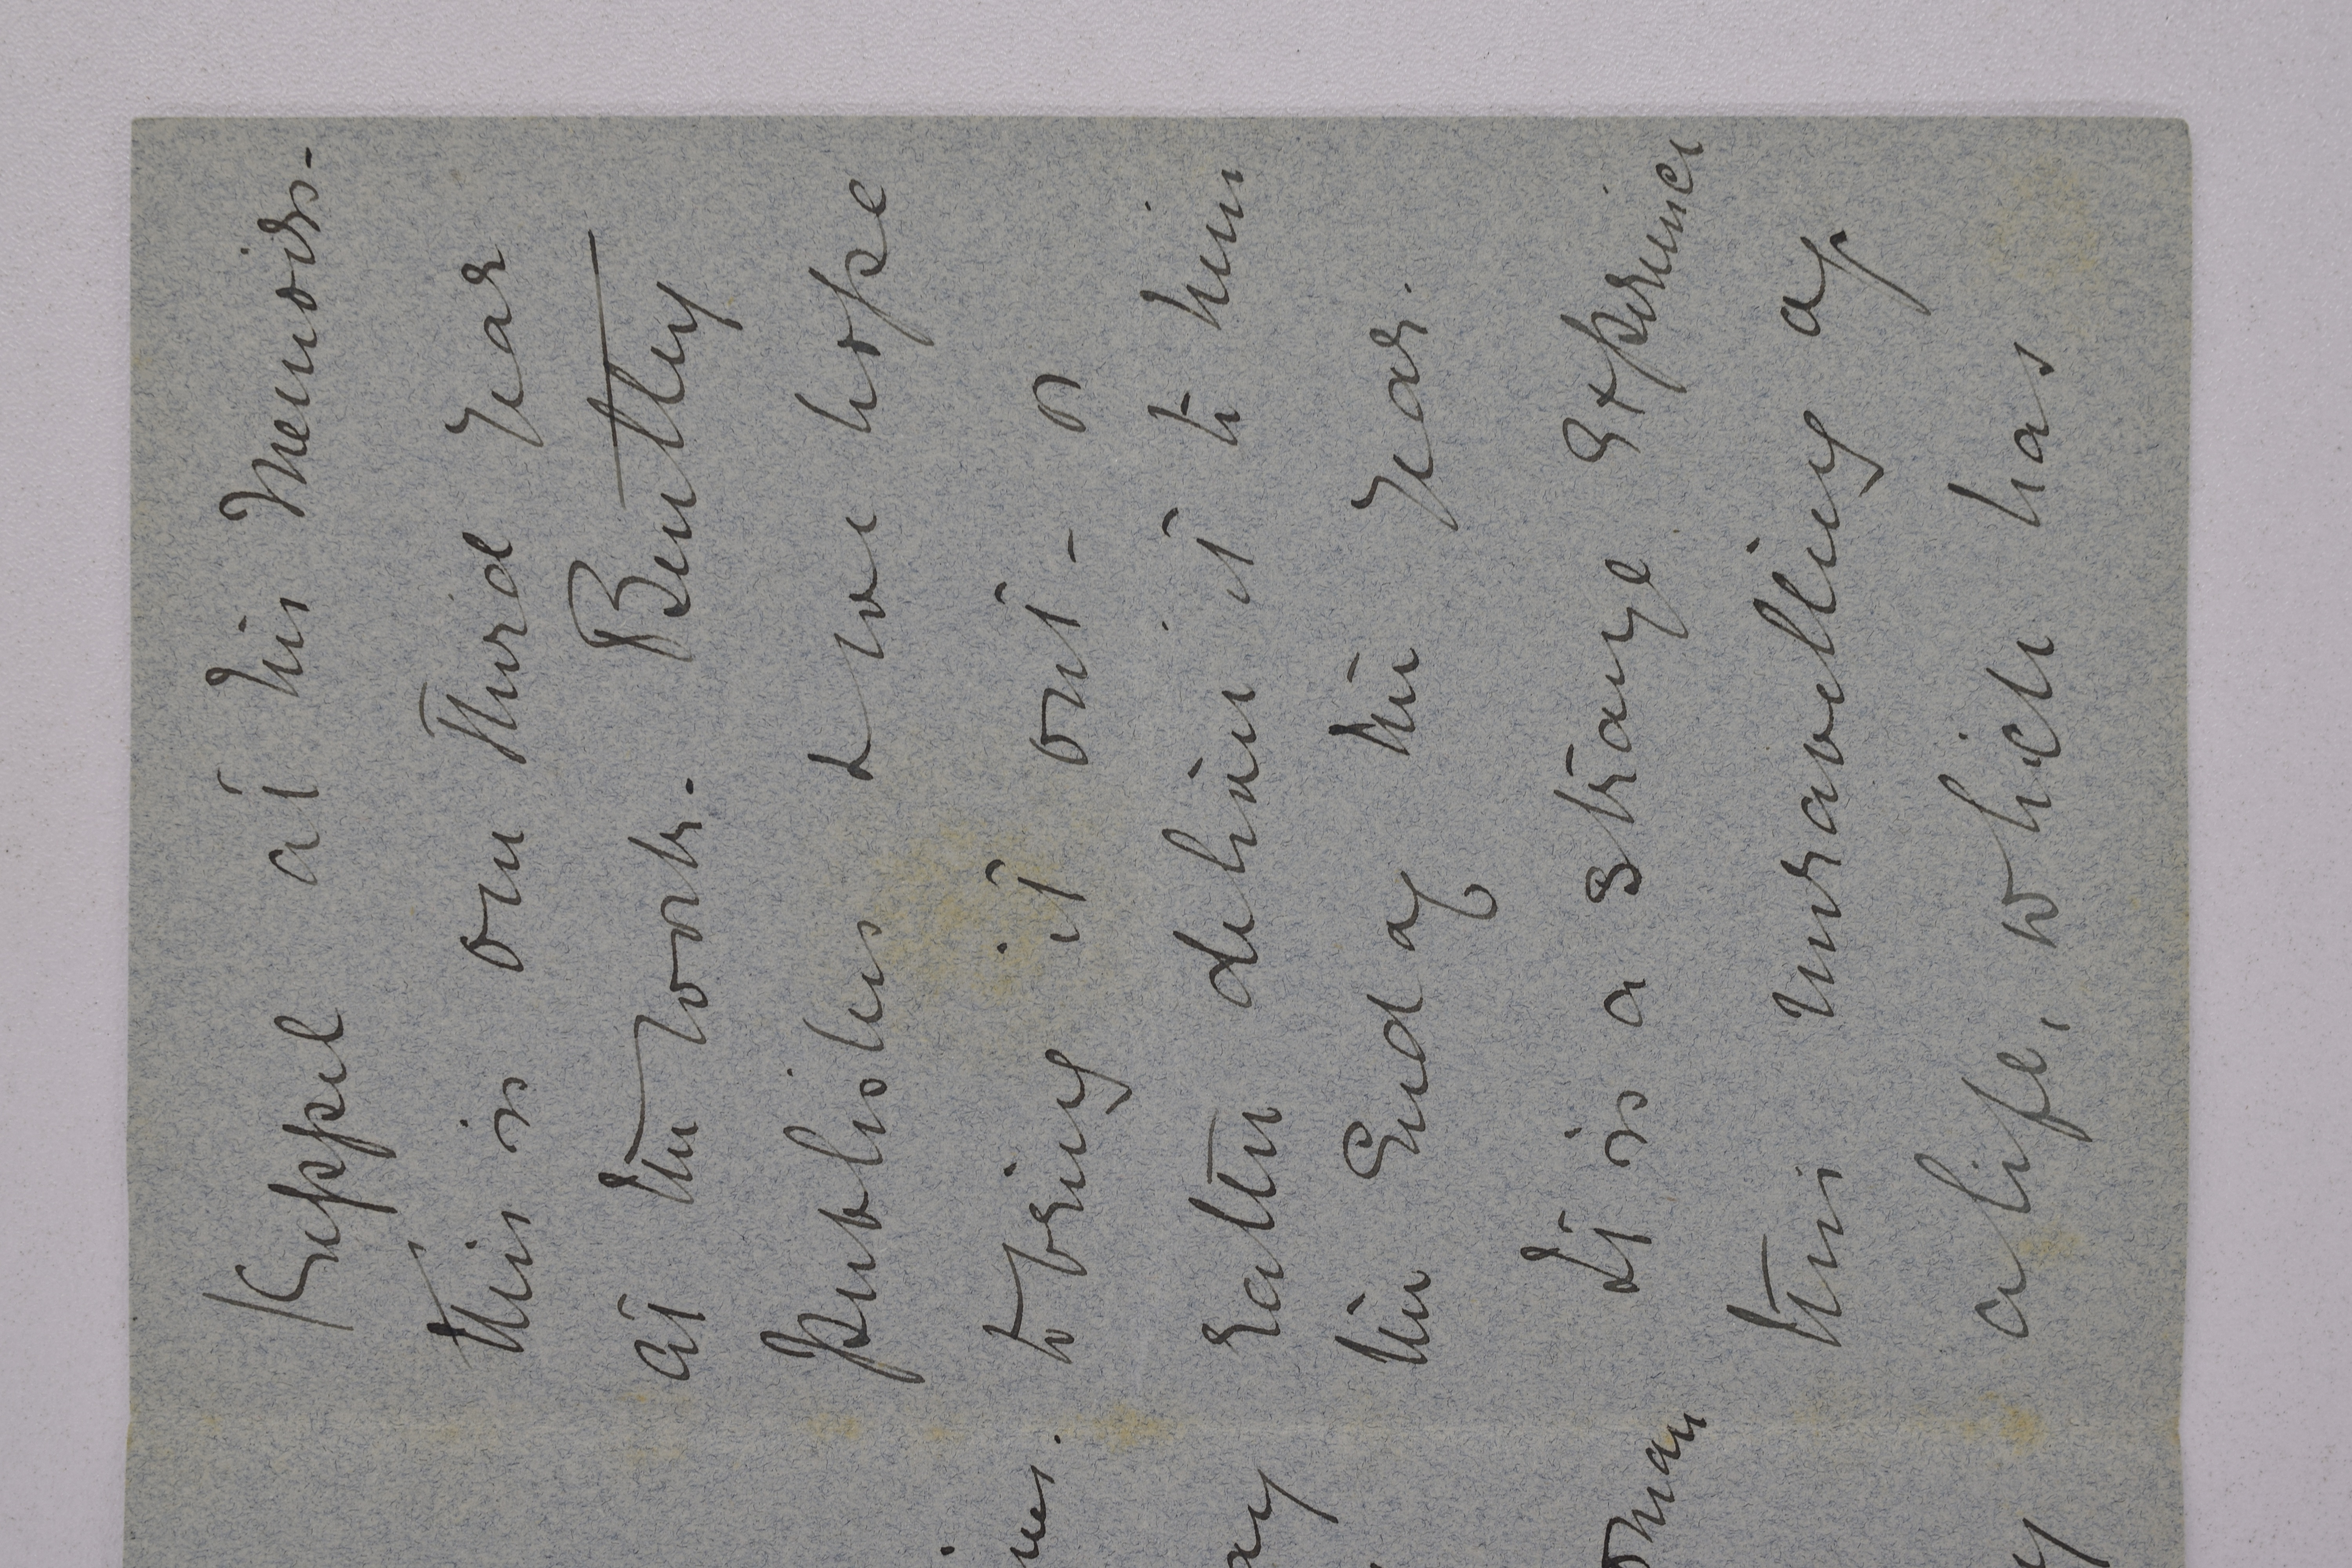 Keppel at his Memoirs -
This is our third year
at the work. Bentley
publishes & we hope
to bring it out - or
rather deliver it to him
the End of the year.
It is a strange Experience
this unravelling of
a life, which has